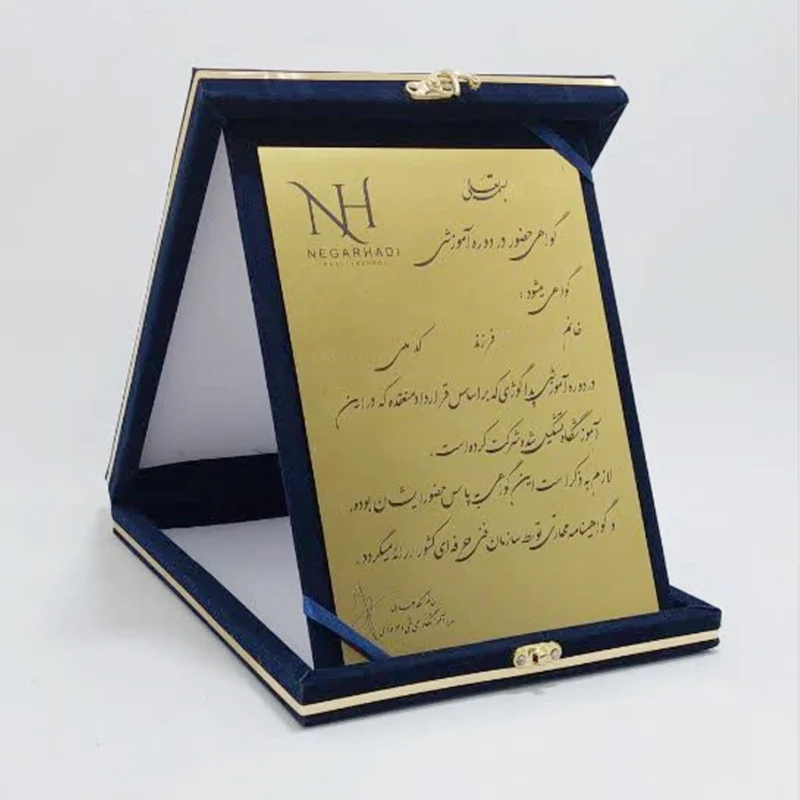 بسمه تعالی
NH
NEGARHADI
گواهی حضور در دوره آموزشی
گواهی میشود :
خانم فرزند کد ملی
در دوره آموزشی پداگوژی که بر اساس قرارداد منعقده که در این
آموزشگاه تشکیل شده شرکت کرده است .
لازم به ذکر است این گواهی به پاس حضور ایشان بوده
و گواهینامه مهارتی توسط سازمان فنی حرفه ای کشور ارائه میگردد .